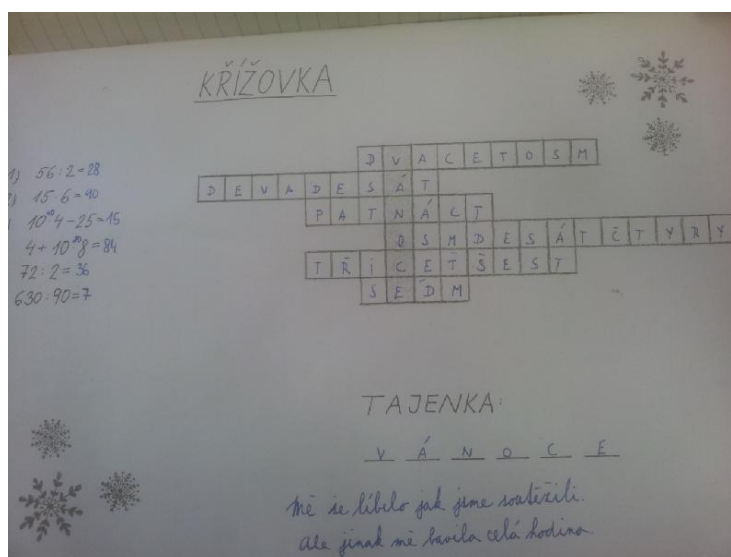 KŘÍŽOVKA
1) 56:2=28
2) 15·6=90
10·4-25=15
4+10·8=84
72:2=36
630:90=7
DVACETOSM
DEVADESÁT
PATNÁCT
OSMDESÁTČTYRY
TŘICETŠEST
SEDM
TAJENKA:
V Á N O C E
Mě se líbilo jak jsme soutěžili.
Ale jinak mě bavila celá hodina